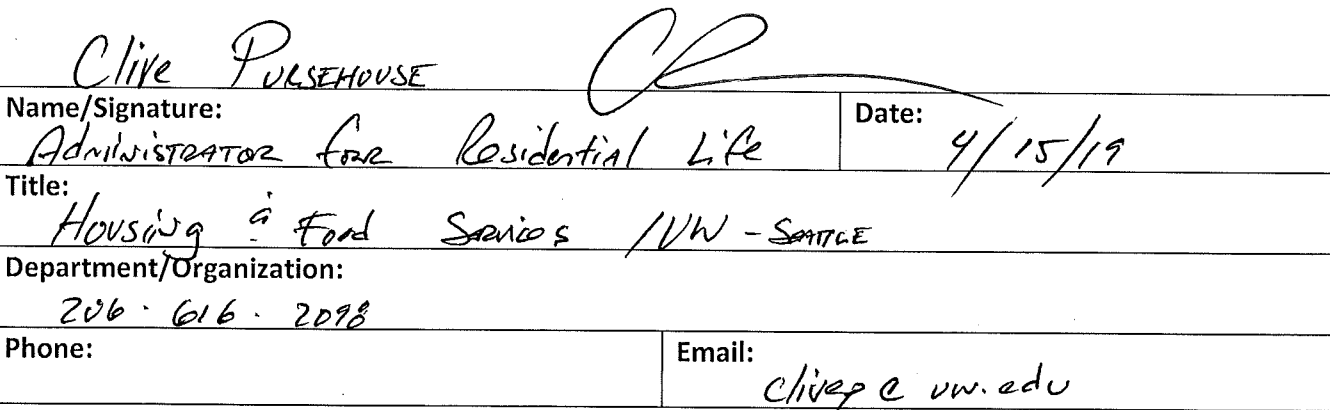 Clive PURSEHOUSE
Name/Signature: Date:
Administrator for Residential Life 4/15/19
Title:
Housing & Food Services / UW - Seattle
Department/Organization:
206 · 616 · 2098
Phone: Email:
clivep@uw.edu